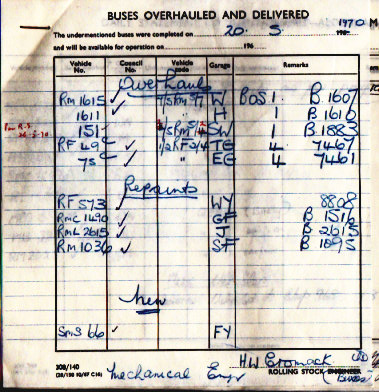 BUSES OVERHAULED AND DELIVERED
The undermentioned buses were completed on 20. 5. 1970
and will be available for operation on 196
Vehicle No. Council No. Vehicle code Garage Remarks
Overhauls
RM 1615 ✓ W BOS 1. B 1607
1611 ✓ H 1 B 1610
151 SW 1 B 1883
RF 49 ✓ TG 4 7467
75 ✓ EG 4 7461
Repaints
RF 573 ✓ WY 8808
RMC 1490 ✓ GF B 1516
RML 2615 ✓ J B 2615
RM 1036 ✓ SF B 1095
New
SMS 66 ✓ FY
Mechanical Engr HW Cromack
ROLLING STOCK ENGINEER
(Buses)